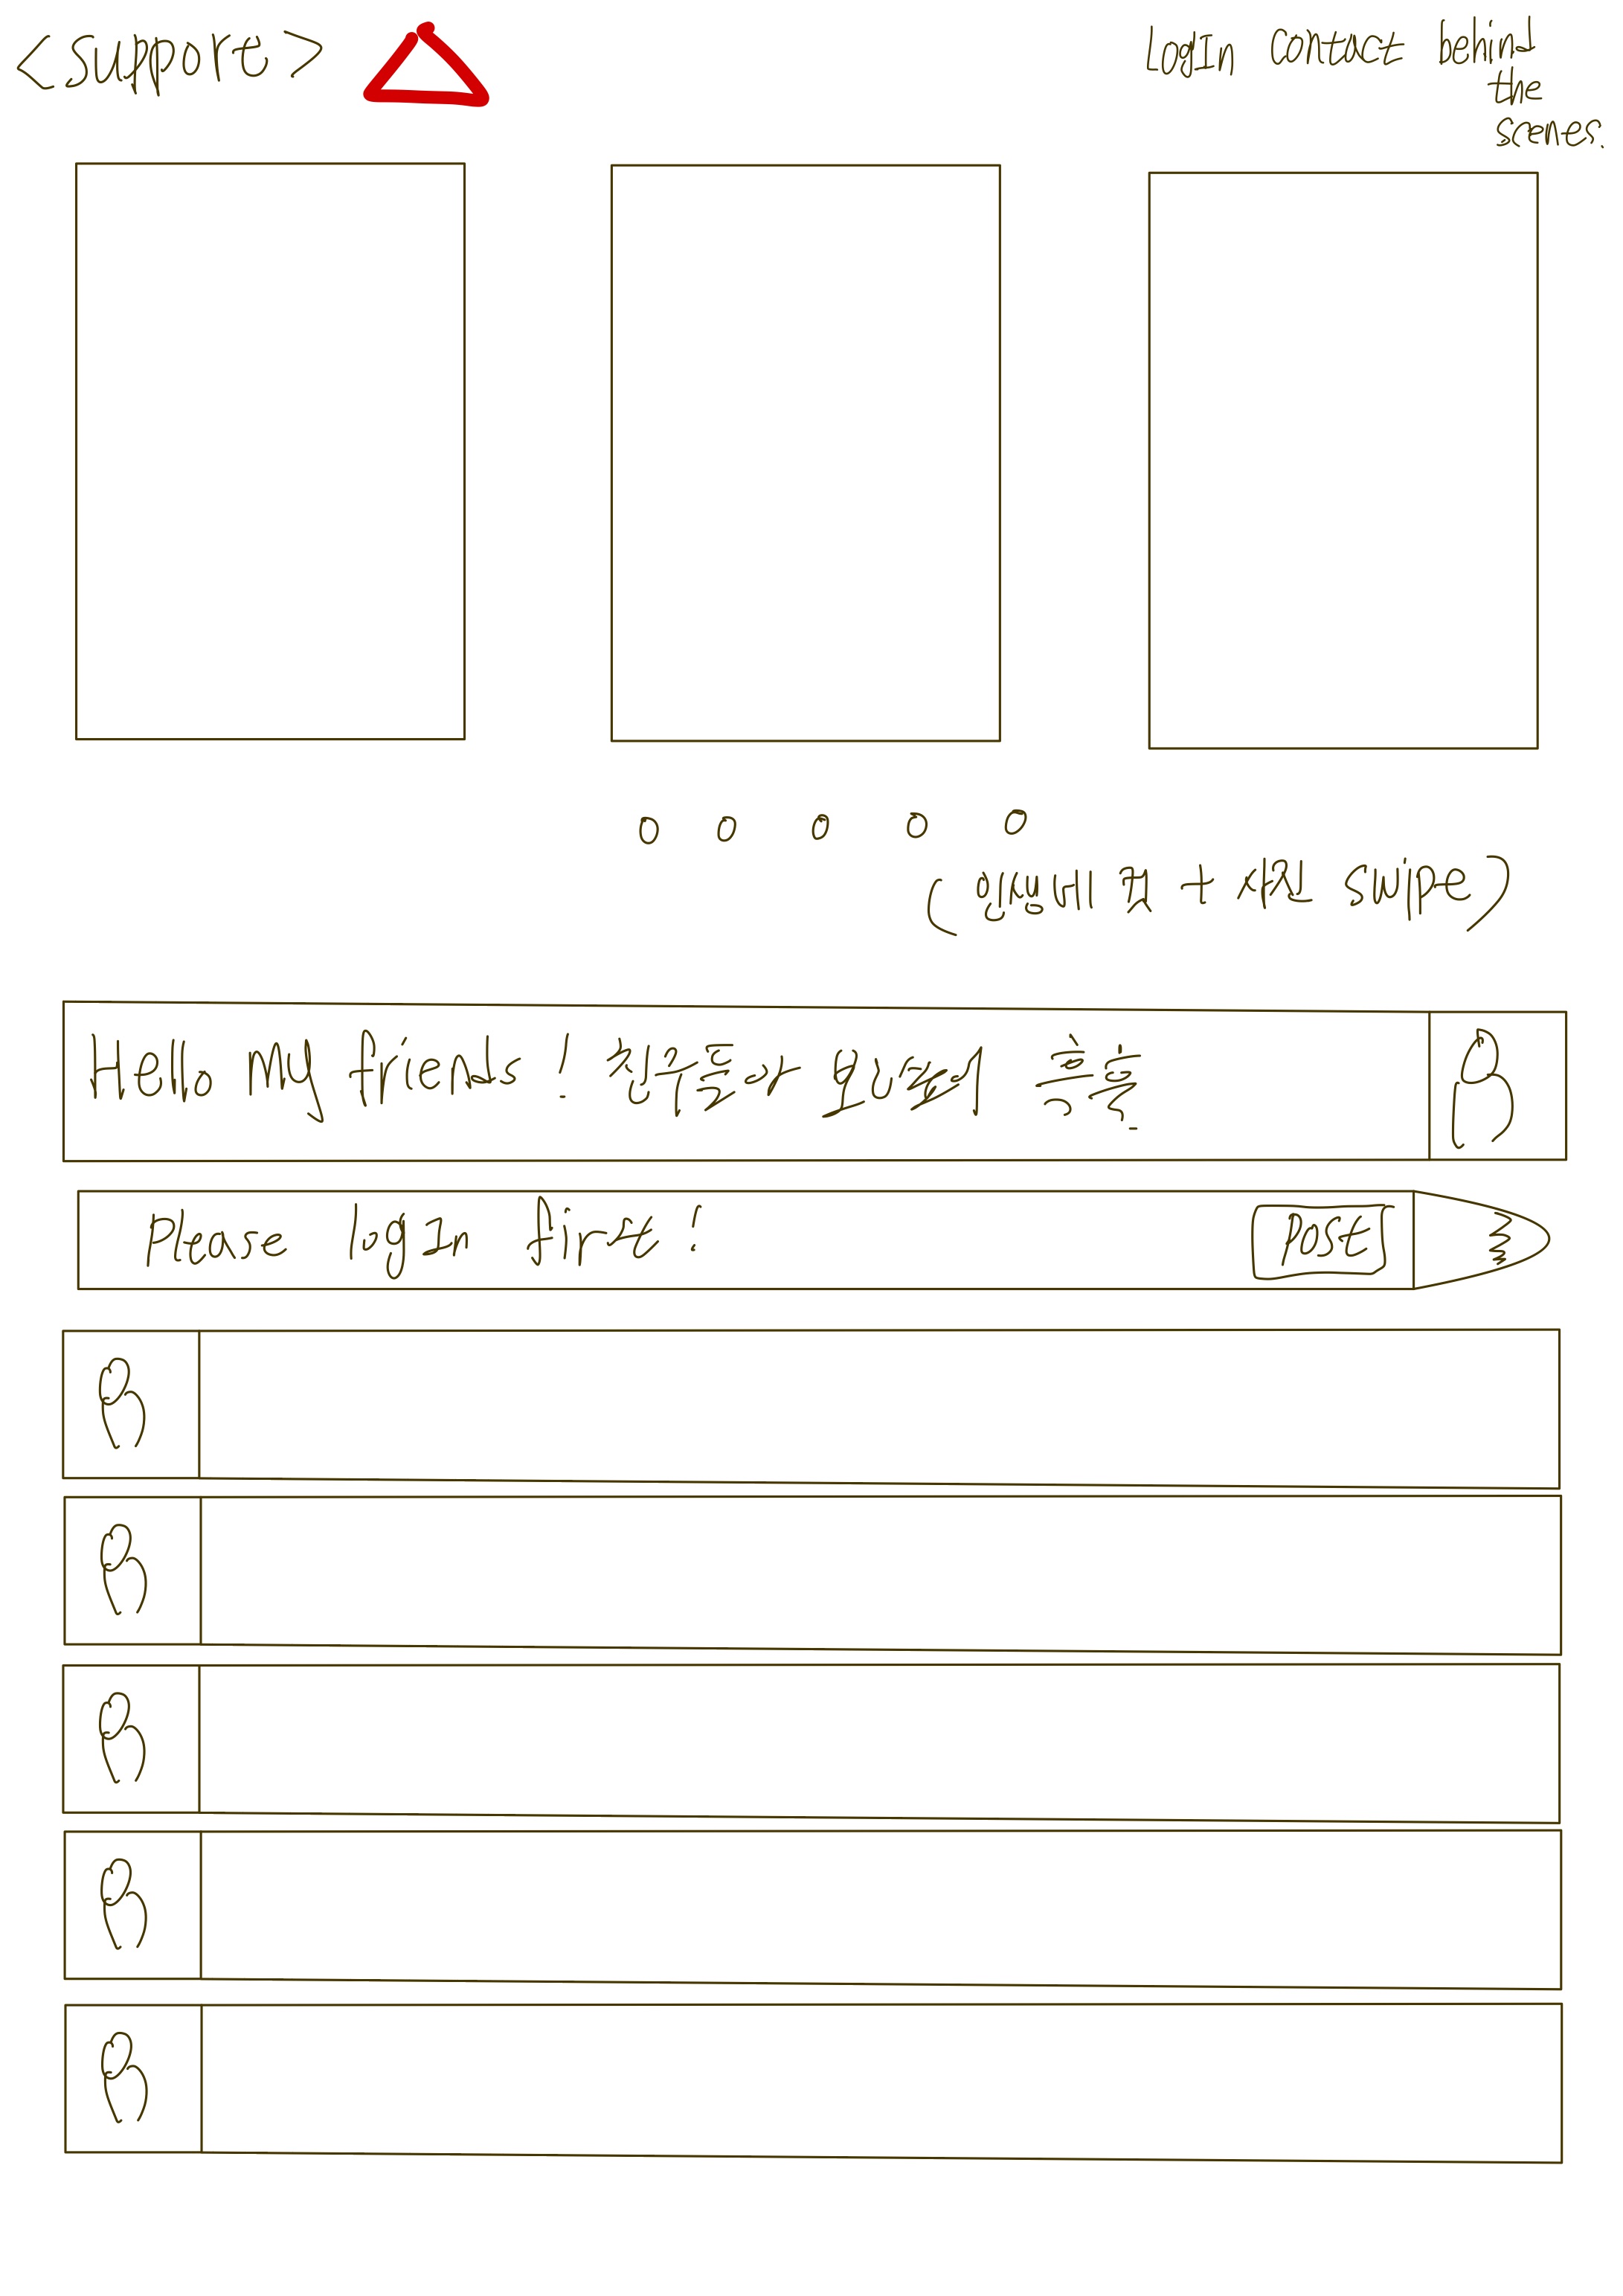 <support>
Login contact behind
the
scenes.
(인생네컷 + 사진 swipe)
Hello my friends!
Please log In first!
Post